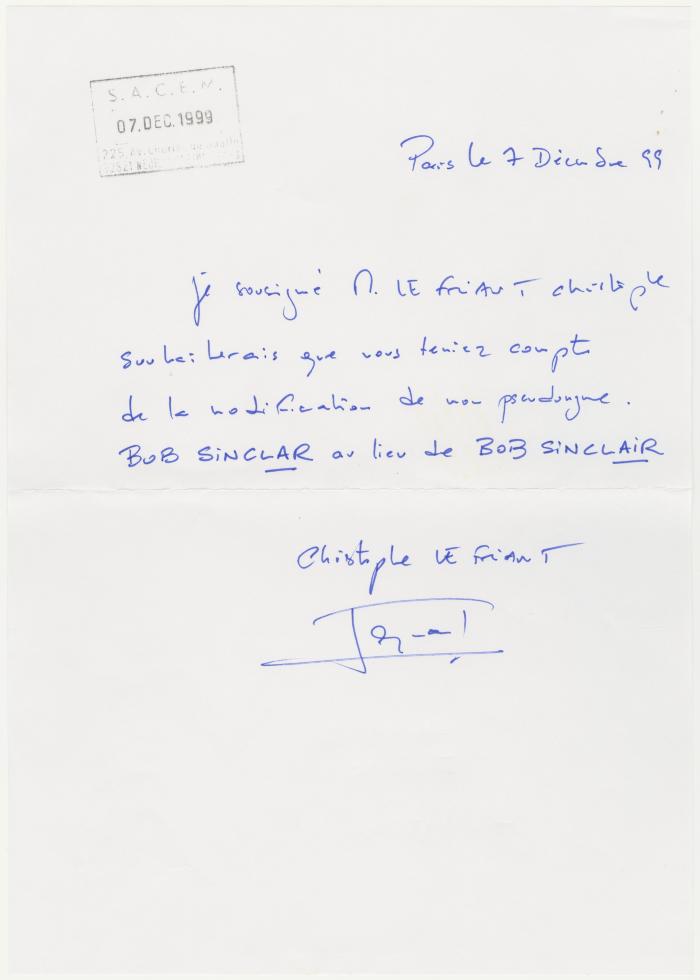 S.A.C.E.M.
07.DEC.1999
225, Av. Charles de Gaulle
92521 NEUILLY
Paris le 7 Décembre 99
je soussigné M. LE FRIANT christophe
souhaiterais que vous teniez compte
de la modification de mon pseudonyme.
BOB SINCLAR au lieu de BOB SINCLAIR
Christophe LE FRIANT